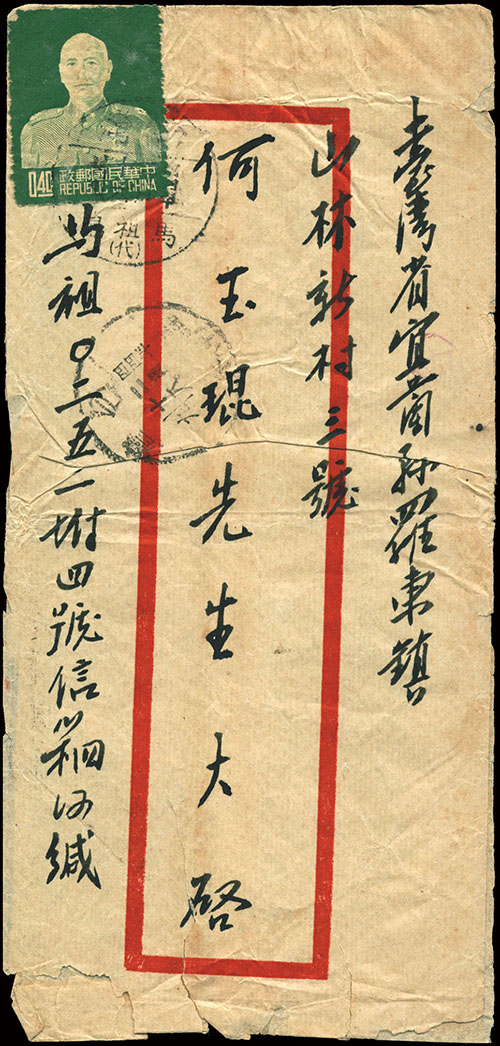 臺灣省宜蘭縣羅東鎮
山林新村三號
何玉琨先生大啓
馬祖〇三五一附四號信箱何緘
中華民國郵政
REPUBLIC OF CHINA
040
馬
祖
(代)